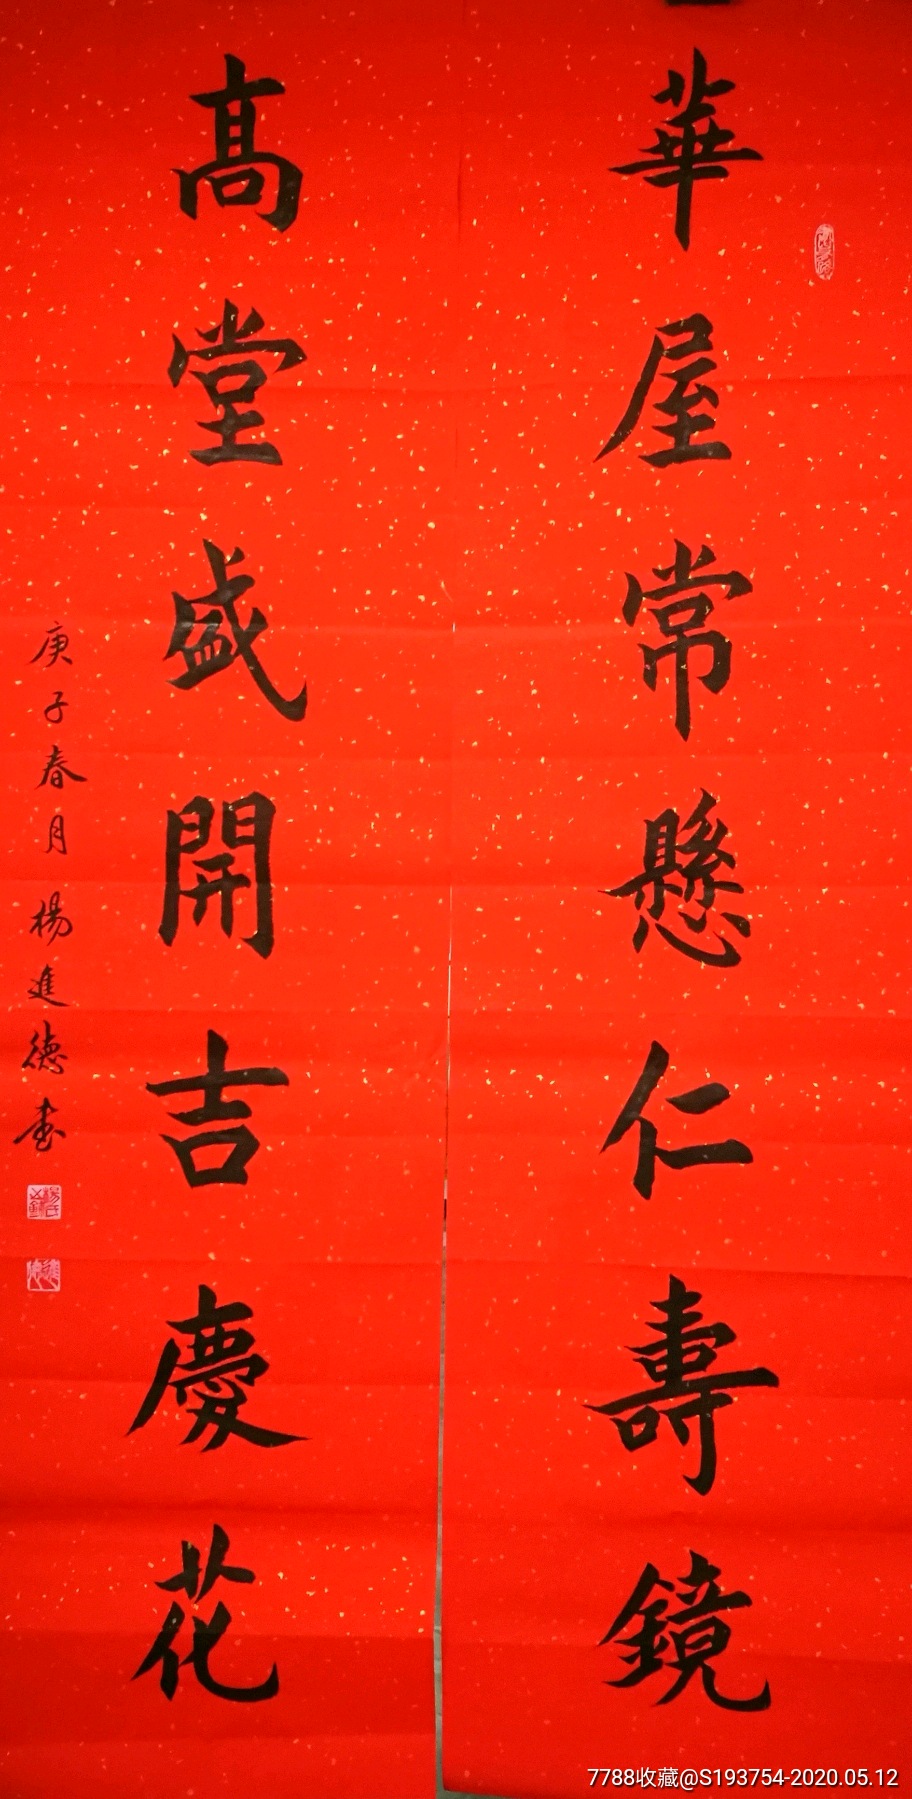 華屋常懸仁壽鏡
高堂盛開吉慶花
庚子春月楊進德书
7788收藏@S193754-2020.05.12